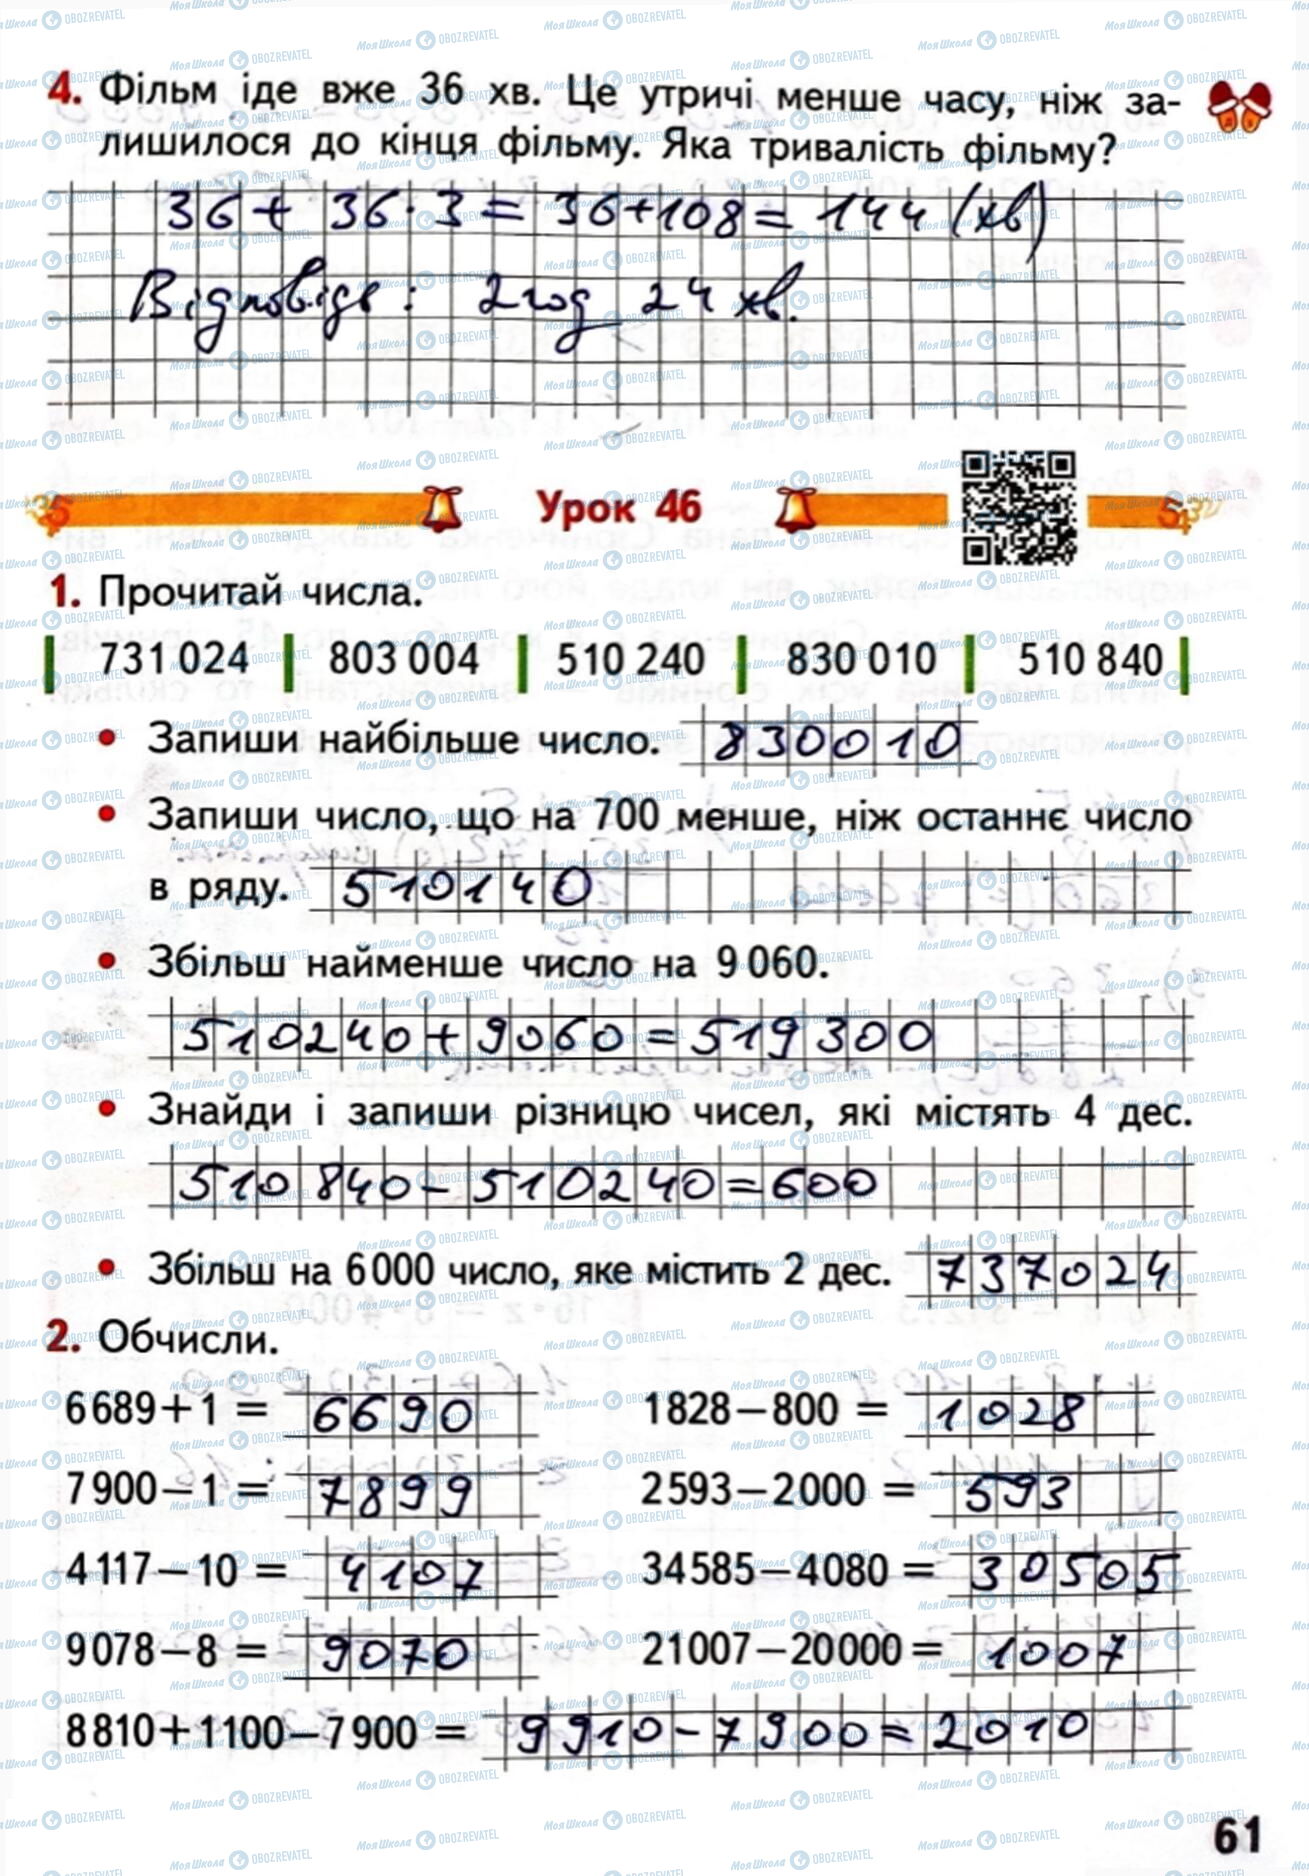 4. Фільм іде вже 36 хв. Це утричі менше часу, ніж за-
лишилося до кінця фільму. Яка тривалість фільму?
36 + 36 · 3 = 36 + 108 = 144 (хв)
Відповідь: 2 год 24 хв.
Урок 46
1. Прочитай числа.
731 024 803 004 510 240 830 010 510 840
• Запиши найбільше число. 830010
• Запиши число, що на 700 менше, ніж останнє число
в ряду. 510140
• Збільш найменше число на 9 060.
510240+9060=519300
• Знайди і запиши різницю чисел, які містять 4 дес.
510840-510240=600
• Збільш на 6 000 число, яке містить 2 дес. 737024
2. Обчисли.
6 689+1 = 6690 1 828−800 = 1028
7 900−1 = 7899 2 593−2 000 = 593
4 117−10 = 4107 34 585−4 080 = 30505
9 078−8 = 9070 21 007−20 000 = 1007
8 810+1 100−7 900 = 9910-7900=2010
61
МояШкола OBOZREVATEL